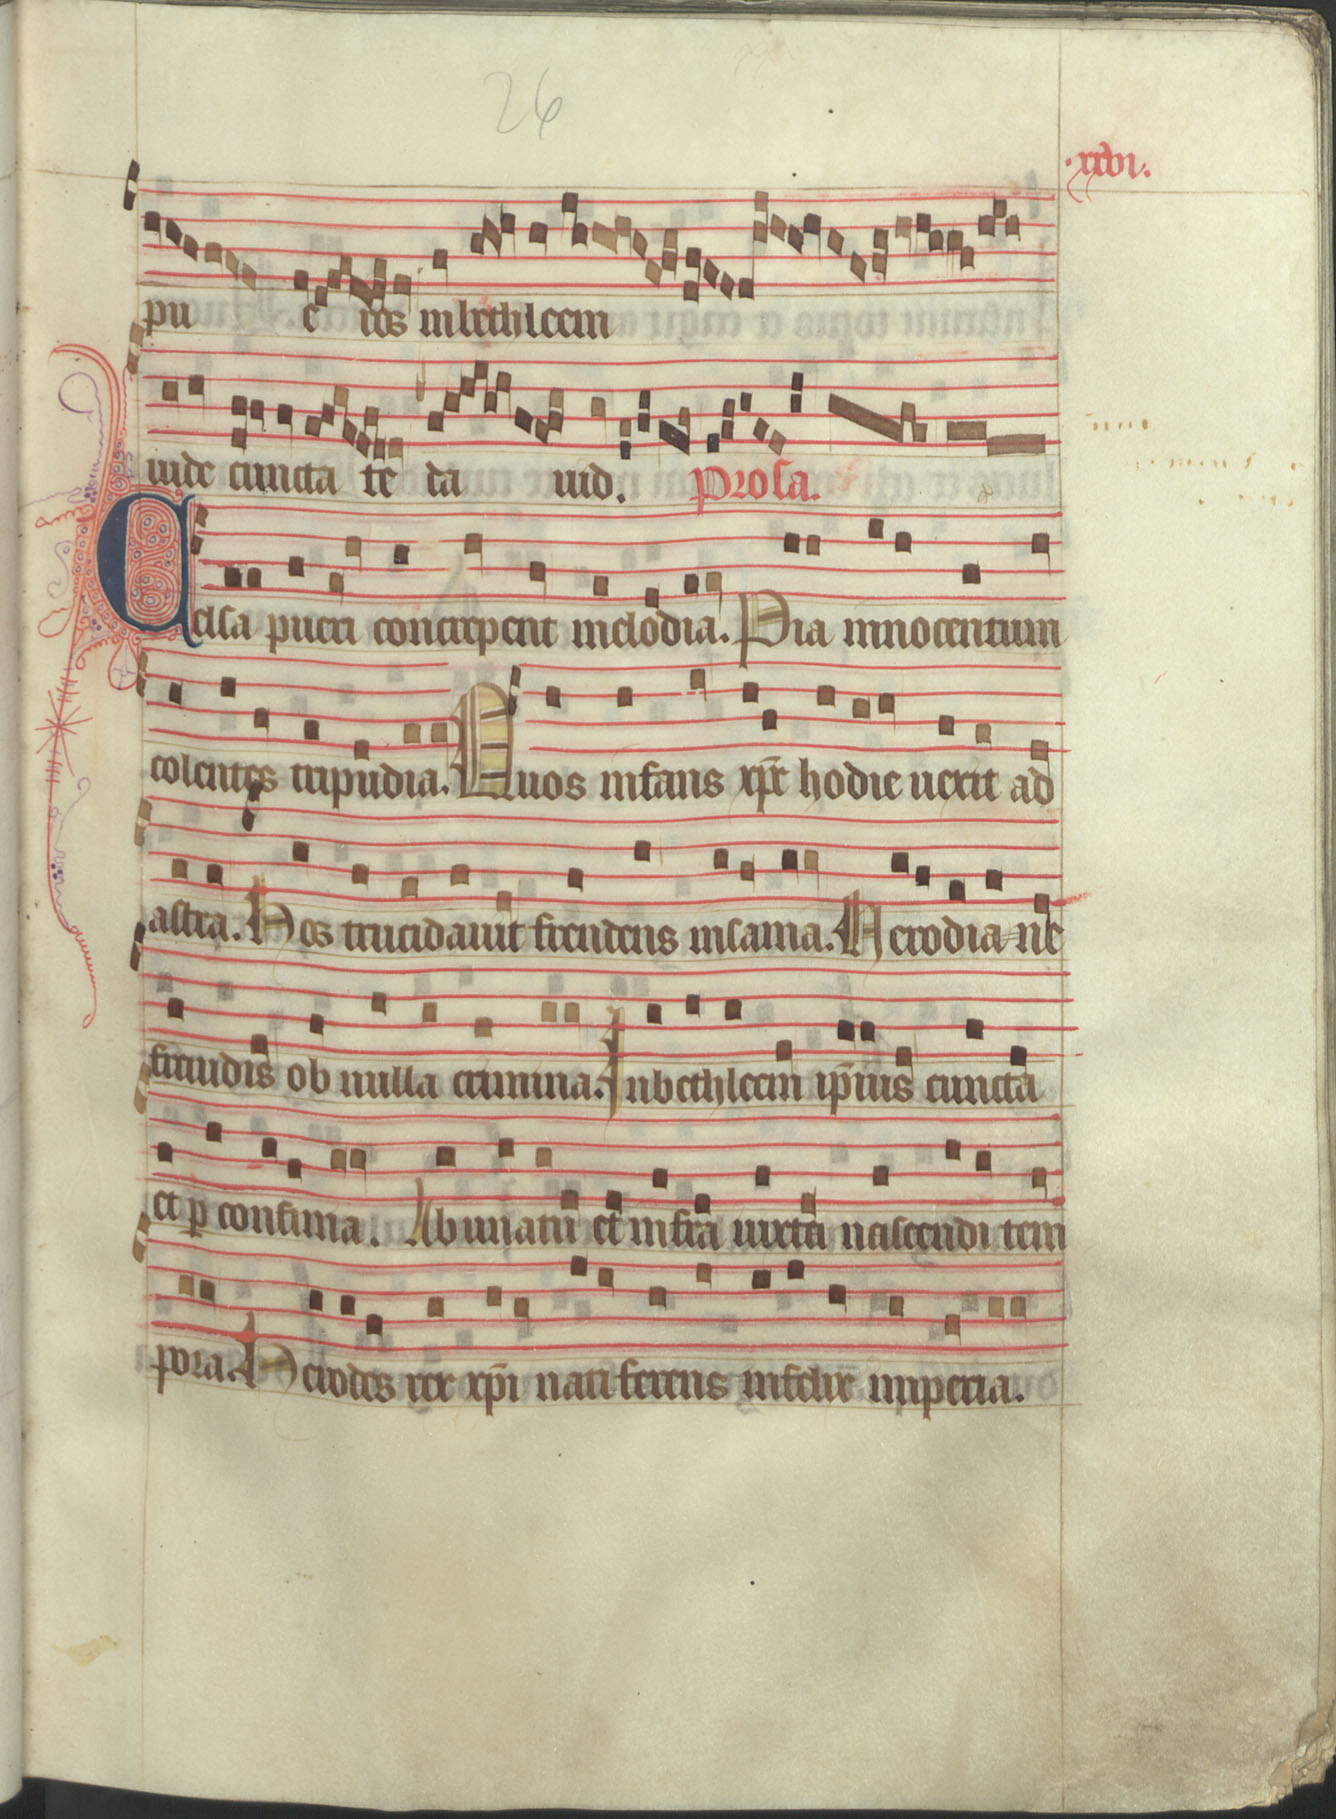 26
.xxvi.
pu e ros in bethleem
iude ciuita te da uid. Prosa.
Celsa pueri concrepent melodia. Pia innocentum
colentes tripudia. Quos infans xpc hodie uexit ad
astra. Hos trucidauit frendens insania. Herodiane
fraudis ob nulla crimina. In bethleem ipius cuncta
et p confinia. A bimatu et infra iuxta nascendi tem
pora. Herodes rex xpi nati ferens infelix imperia.